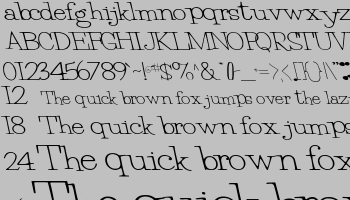 abcdefghijklmnopqrstuvwxyz
ABCDEFGHIJKLMNOPQRSTUV
0123456789
12 The quick brown fox jumps over the laz
18 The quick brown fox jumps
24 The quick brown fox
The quick brow